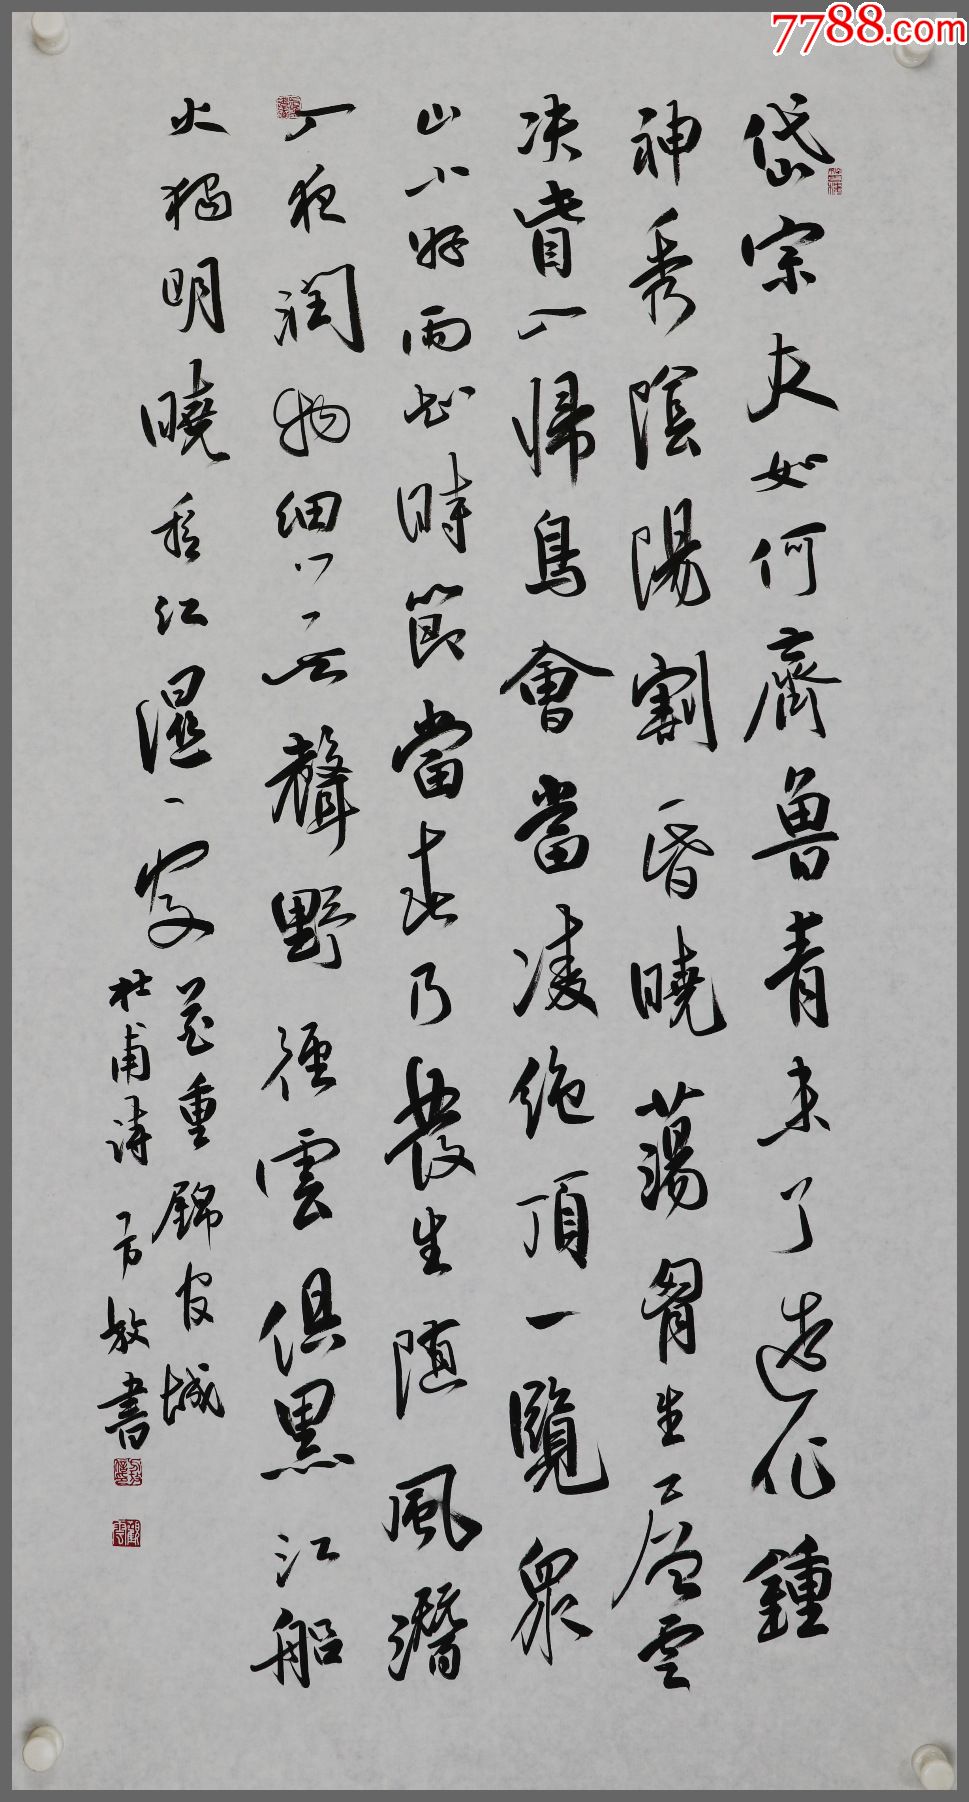 7788.com
岱宗夫如何齊魯青未了造化鍾
神秀陰陽割昏曉蕩胷生層雲
决眥入歸鳥會當凌絶頂一覽衆
山小好雨知時節當春乃發生随風潛
入夜潤物細無聲野徑雲俱黑江船
火獨明曉看紅濕處花重錦官城
杜甫詩方放書